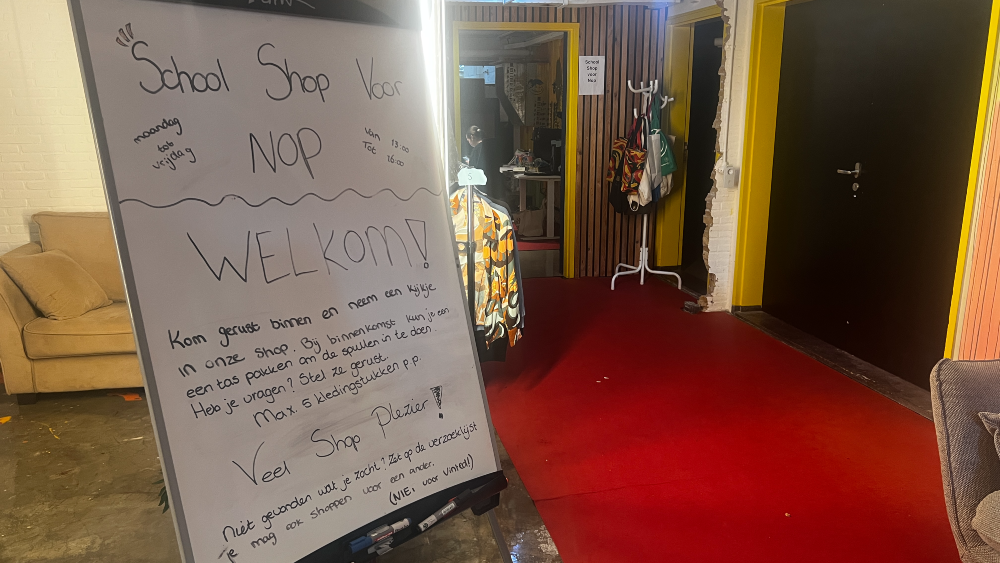 School Shop Voor
NOP
maandag
tot
vrijdag
van 13:00
Tot 16:00
WELKOM!
Kom gerust binnen en neem een kijkje
in onze shop. Bij binnenkomst kun je een
een tas pakken om de spullen in te doen.
Heb je vragen? Stel ze gerust.
Max. 5 kledingstukken p.p.
Veel Shop Plezier!
Niet gevonden wat je zocht? Zet op de verzoeklijst
je mag ook shoppen voor een ander.
(NIE, voor vinted!)
School
Shop
voor
Nop